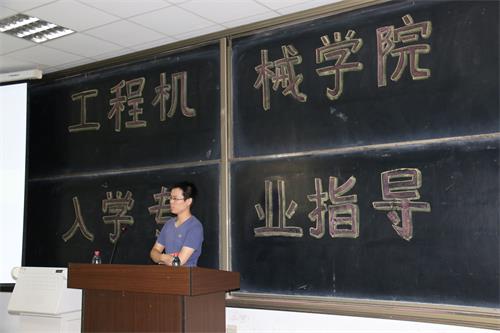 工程机械学院
入学专业指导